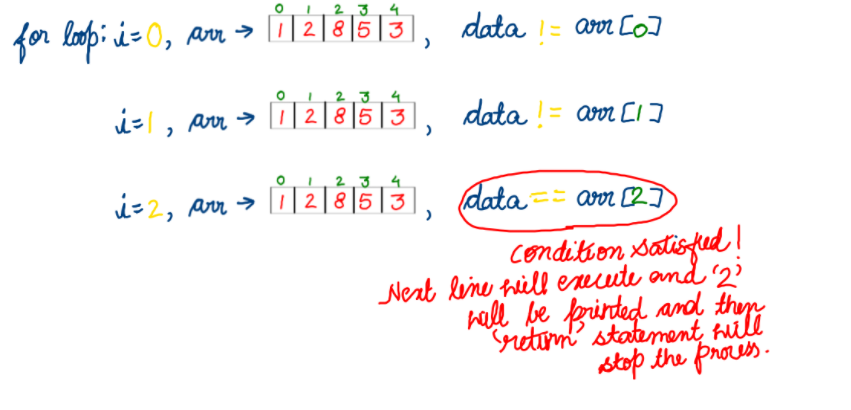 0 1 2 3 4
for loop: i=0, arr → 1 2 8 5 3 , data != arr [0]
0 1 2 3 4
i=1 , arr → 1 2 8 5 3 , data != arr [1]
0 1 2 3 4
i=2, arr → 1 2 8 5 3 , data == arr [2]
condition satisfied!
Next line will execute and '2'
will be printed and then
'return' statement will
stop the process.